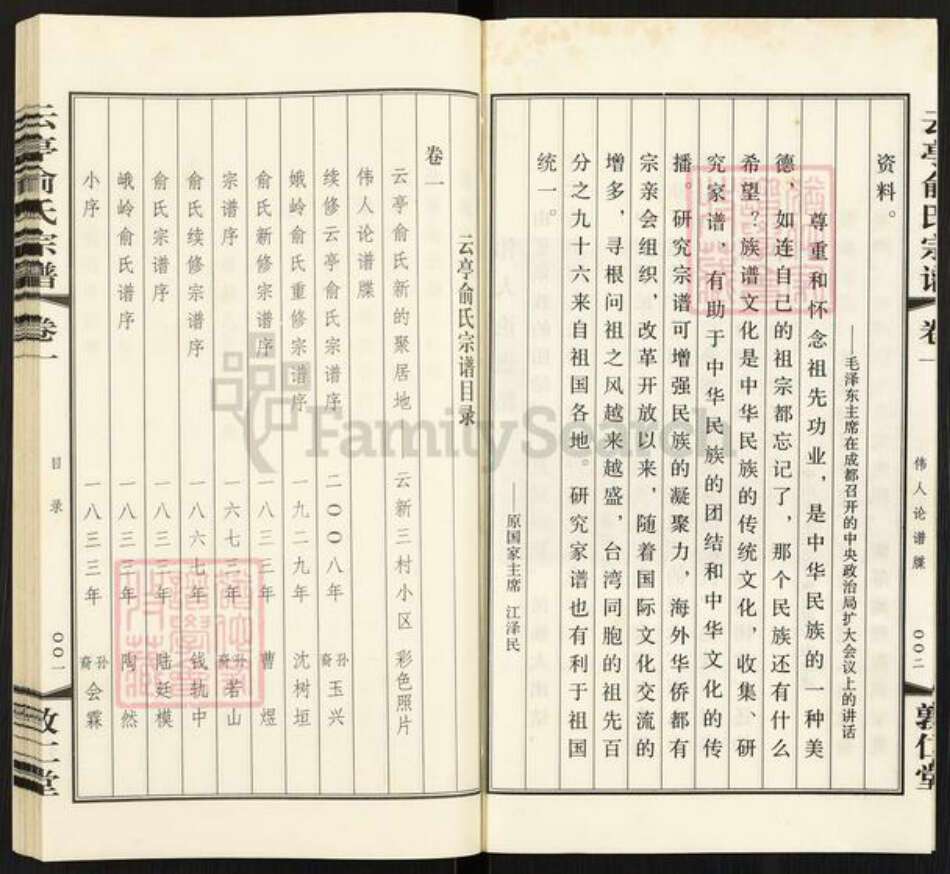 云亭俞氏宗谱 卷一
伟人论谱牒
〇〇二
敦仁堂
资料。
——毛泽东主席在成都召开的中央政治局扩大会议上的讲话
尊重和怀念祖先功业，是中华民族的一种美
德，如连自己的祖宗都忘记了，那个民族还有什么
希望？族谱文化是中华民族的传统文化，收集、研
究家谱，有助于中华民族的团结和中华文化的传
播。研究宗谱可增强民族的凝聚力，海外华侨都有
宗亲会组织，改革开放以来，随着国际文化交流的
增多，寻根问祖之风越来越盛，台湾同胞的祖先百
分之九十六来自祖国各地。研究家谱也有利于祖国
统一。
——原国家主席 江泽民
云亭俞氏宗谱目录
卷一
云亭俞氏新的聚居地 云新三村小区 彩色照片
伟人论谱牒
续修云亭俞氏宗谱序 二〇〇八年 裔孙玉兴
峨岭俞氏重修宗谱序 一九二九年 沈树垣
俞氏新修宗谱序 一八三三年 曹煜
宗谱序 一六七三年 裔孙若山
俞氏续修宗谱序 一八六七年 钱轨中
俞氏宗谱序 一八三三年 陆廷模
峨岭俞氏谱序 一八三三年 陶然
小序 一八三三年 裔孙会霖
云亭俞氏宗谱 卷一
目录
〇〇一
敦仁堂
FamilySearch